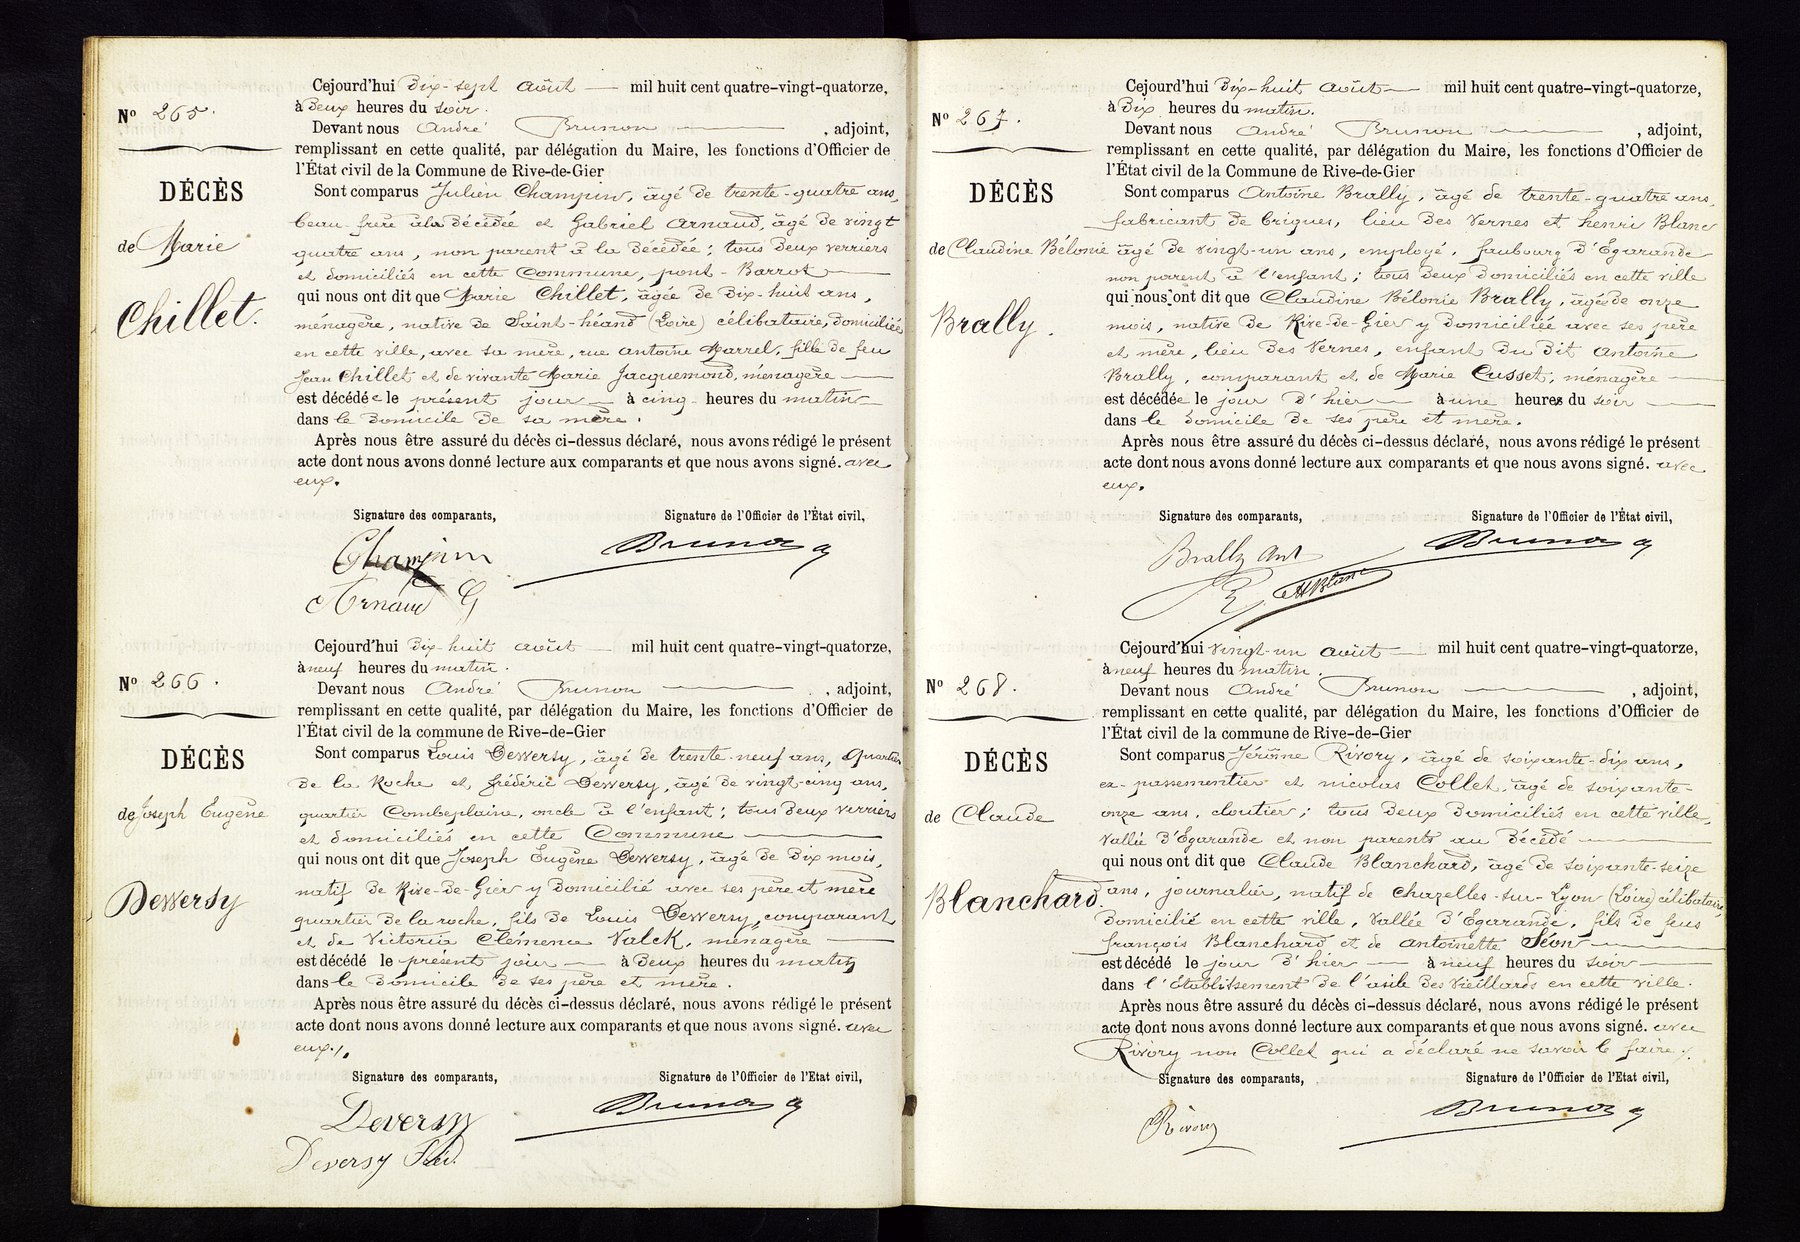 Nº 265.
DÉCÈS
de Marie
Chillet.
Cejourd'hui Dix-sept août — mil huit cent quatre-vingt-quatorze,
à Deux heures du soir.
Devant nous André Brunon — , adjoint,
remplissant en cette qualité, par délégation du Maire, les fonctions d'Officier de
l'État civil de la Commune de Rive-de-Gier
Sont comparus Julien Champin, âgé de trente-quatre ans,
beau-frère à la décédée et Gabriel Arnaud, âgé de vingt
quatre ans, non parent à la décédée ; tous deux verriers
et domiciliés en cette Commune, pont-Barrot —
qui nous ont dit que Marie Chillet, âgée de Dix-huit ans,
ménagère, native de Saint-héand (Loire) célibataire, domiciliée
en cette ville, avec sa mère, rue antoine Marrel, fille de feu
Jean Chillet et de vivante Marie Jacquemond, ménagère —
est décédée le présent jour — à cinq heures du matin —
dans le domicile de sa mère.
Après nous être assuré du décès ci-dessus déclaré, nous avons rédigé le présent
acte dont nous avons donné lecture aux comparants et que nous avons signé. avec
eux.
Signature des comparants, Signature de l'Officier de l'État civil,
Champin Brunon
Arnaud G
Nº 266.
DÉCÈS
de Joseph Eugène
Dewersy
Cejourd'hui Dix-huit août — mil huit cent quatre-vingt-quatorze,
à neuf heures du matin.
Devant nous André Brunon — , adjoint,
remplissant en cette qualité, par délégation du Maire, les fonctions d'Officier de
l'État civil de la commune de Rive-de-Gier
Sont comparus Louis Dewersy, âgé de trente-neuf ans, quartier
de la Roche et frédéric Dewersy, âgé de vingt-cinq ans,
quartier Combeplaine, oncle à l'enfant ; tous deux verriers
et domiciliés en cette Commune —
qui nous ont dit que Joseph Eugène Dewersy, âgé de Dix mois,
natif de Rive-de-Gier y domicilié avec ses père et mère
quartier de la roche, fils de Louis Dewersy, comparant
et de Victoria Clémence Valck, ménagère —
est décédé le présent jour — à Deux heures du matin
dans le domicile de ses père et mère.
Après nous être assuré du décès ci-dessus déclaré, nous avons rédigé le présent
acte dont nous avons donné lecture aux comparants et que nous avons signé. avec
eux./.
Signature des comparants, Signature de l'Officier de l'Etat civil,
Deversy Brunon
Deversy Fréd.
Nº 267.
DÉCÈS
de Claudine Bélonie
Brally.
Cejourd'hui Dix-huit août — mil huit cent quatre-vingt-quatorze,
à Dix heures du matin.
Devant nous André Brunon — , adjoint,
remplissant en cette qualité, par délégation du Maire, les fonctions d'Officier de
l'État civil de la Commune de Rive-de-Gier
Sont comparus Antoine Brally, âgé de trente-quatre ans,
fabricant de briques, lieu des Vernes et henri Blanc
âgé de vingt-un ans, employé, faubourg d'Egarande
non parent à l'enfant ; tous deux domiciliés en cette ville
qui nous ont dit que Claudine Bélonie Brally, âgée de onze
mois, native de Rive-de-Gier y domiciliée avec ses père
et mère, lieu des Vernes, enfant du dit Antoine
Brally, comparant et de Marie Cusset, ménagère —
est décédée le jour d'hier — à une heures du soir —
dans le domicile de ses père et mère.
Après nous être assuré du décès ci-dessus déclaré, nous avons rédigé le présent
acte dont nous avons donné lecture aux comparants et que nous avons signé. avec
eux.
Signature des comparants, Signature de l'Officier de l'État civil,
Brally Ant Brunon
HBlanc
Nº 268.
DÉCÈS
de Claude
Blanchard.
Cejourd'hui vingt-un août — mil huit cent quatre-vingt-quatorze,
à neuf heures du matin.
Devant nous André Brunon — , adjoint,
remplissant en cette qualité, par délégation du Maire, les fonctions d'Officier de
l'État civil de la commune de Rive-de-Gier
Sont comparus Jérôme Rivory, âgé de soixante-dix ans,
ex-passementier et nicolas Collet, âgé de soixante-
onze ans, cloutier ; tous deux domiciliés en cette ville,
Vallée d'Egarande et non parents au décédé —
qui nous ont dit que Claude Blanchard, âgé de soixante-seize
ans, journalier, natif de chazelles-sur-Lyon (Loire) célibataire,
domicilié en cette ville, Vallée d'Egarande, fils de feus
françois Blanchard et de antoinette Séon —
est décédé le jour d'hier — à neuf heures du soir —
dans l'établissement de l'asile des Vieillards en cette ville.
Après nous être assuré du décès ci-dessus déclaré, nous avons rédigé le présent
acte dont nous avons donné lecture aux comparants et que nous avons signé. avec
Rivory non Collet qui a déclaré ne savoir le faire./.
Signature des comparants, Signature de l'Officier de l'État civil,
Rivory Brunon